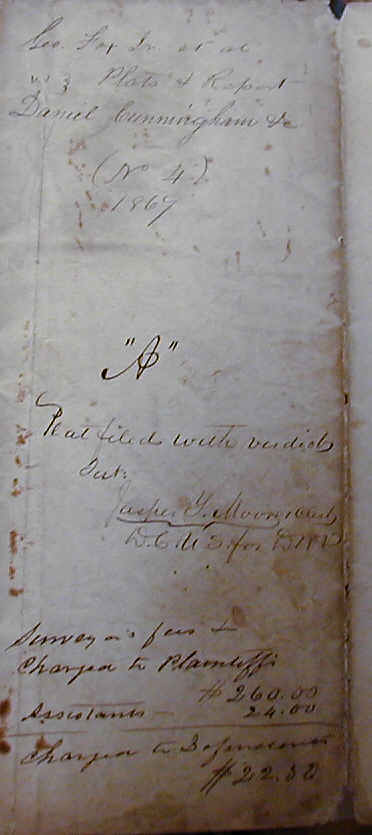 Geo. Fox Jr. et al
vs } Plats & Report
Daniel Cunningham &c
(No 4)
1867
"A"
Plat filed with verdict
Test:
Jasper Y. Moore Clerk
D.C U S for D W V
Surveyors fees &
Charged to Plaintiffs
$260.00
Assistants — 24.00
Charged to Defendants
$22.50